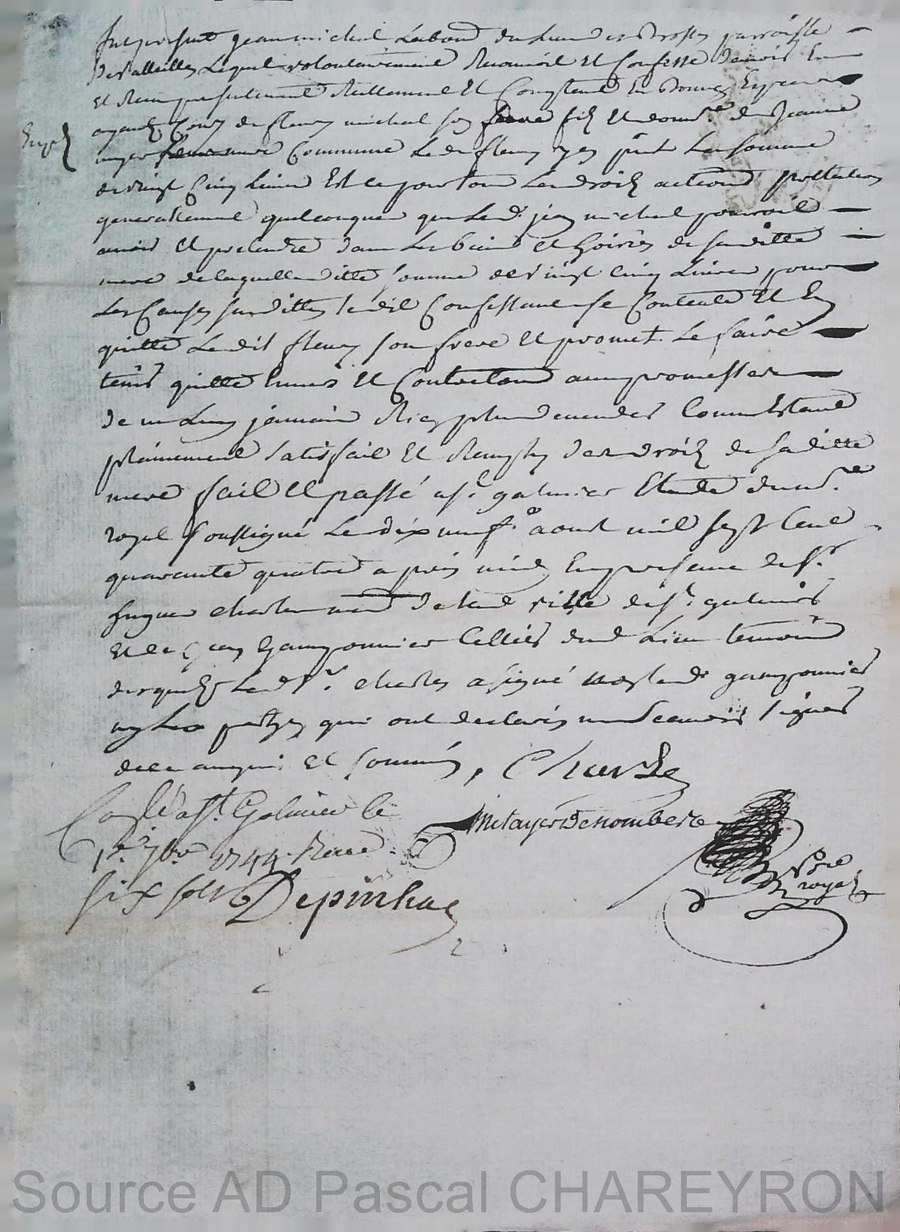 fut present jean michel Labour du Lieu des Brosses parroisse
de valeilles Lequel volontairement Reconnoit et Confesse avoir Eu
Et Receu presentement Réellement Et Comptant En Bonnes Especes
ayant Cours de fleury michel son frere fils et de
Commune Led. fleury icy pnt La somme
de vingt Cinq Livres Et ce pour tous Les droits actions pretentions
generallement quelconques que Led. jean michel pouvoit
avoir et pretendre dans Les biens et hoiries de sa ditte
mere de laquelle ditte somme de vingt Cinq Livres pour
Les Causes susdittes ledit Confessant se Contente Et En
quitte Ledit fleury son frere Et promet Le faire
tenir quitte Envers Et Contre tous avec promesses
de ne Luy jamais Rien plus demander Comme Estant
pleinement satisfait Et Remply des droits de sa ditte
mere fait et passé a St. galmier Etude du nre.
royal soussigné Le dix neuf.e aout mil sept Cent
quarante quatre apres midy En presence de Sr.
hugue charles md. de lad. ville de St. galmier
Et de jean ganponnier Cellier dud. Lieu temoins
desquels Led. Sr. charles a signé non led. ganponnier
ny Les parties qui ont declaré ne scavoir signer
de ce Enquis et sommés, Charles
Conllé a St. Galmier le Metayer Denombret
1er. 7bre 1744 Receu
six sols Depinhac Nore
royal
Source AD Pascal CHAREYRON